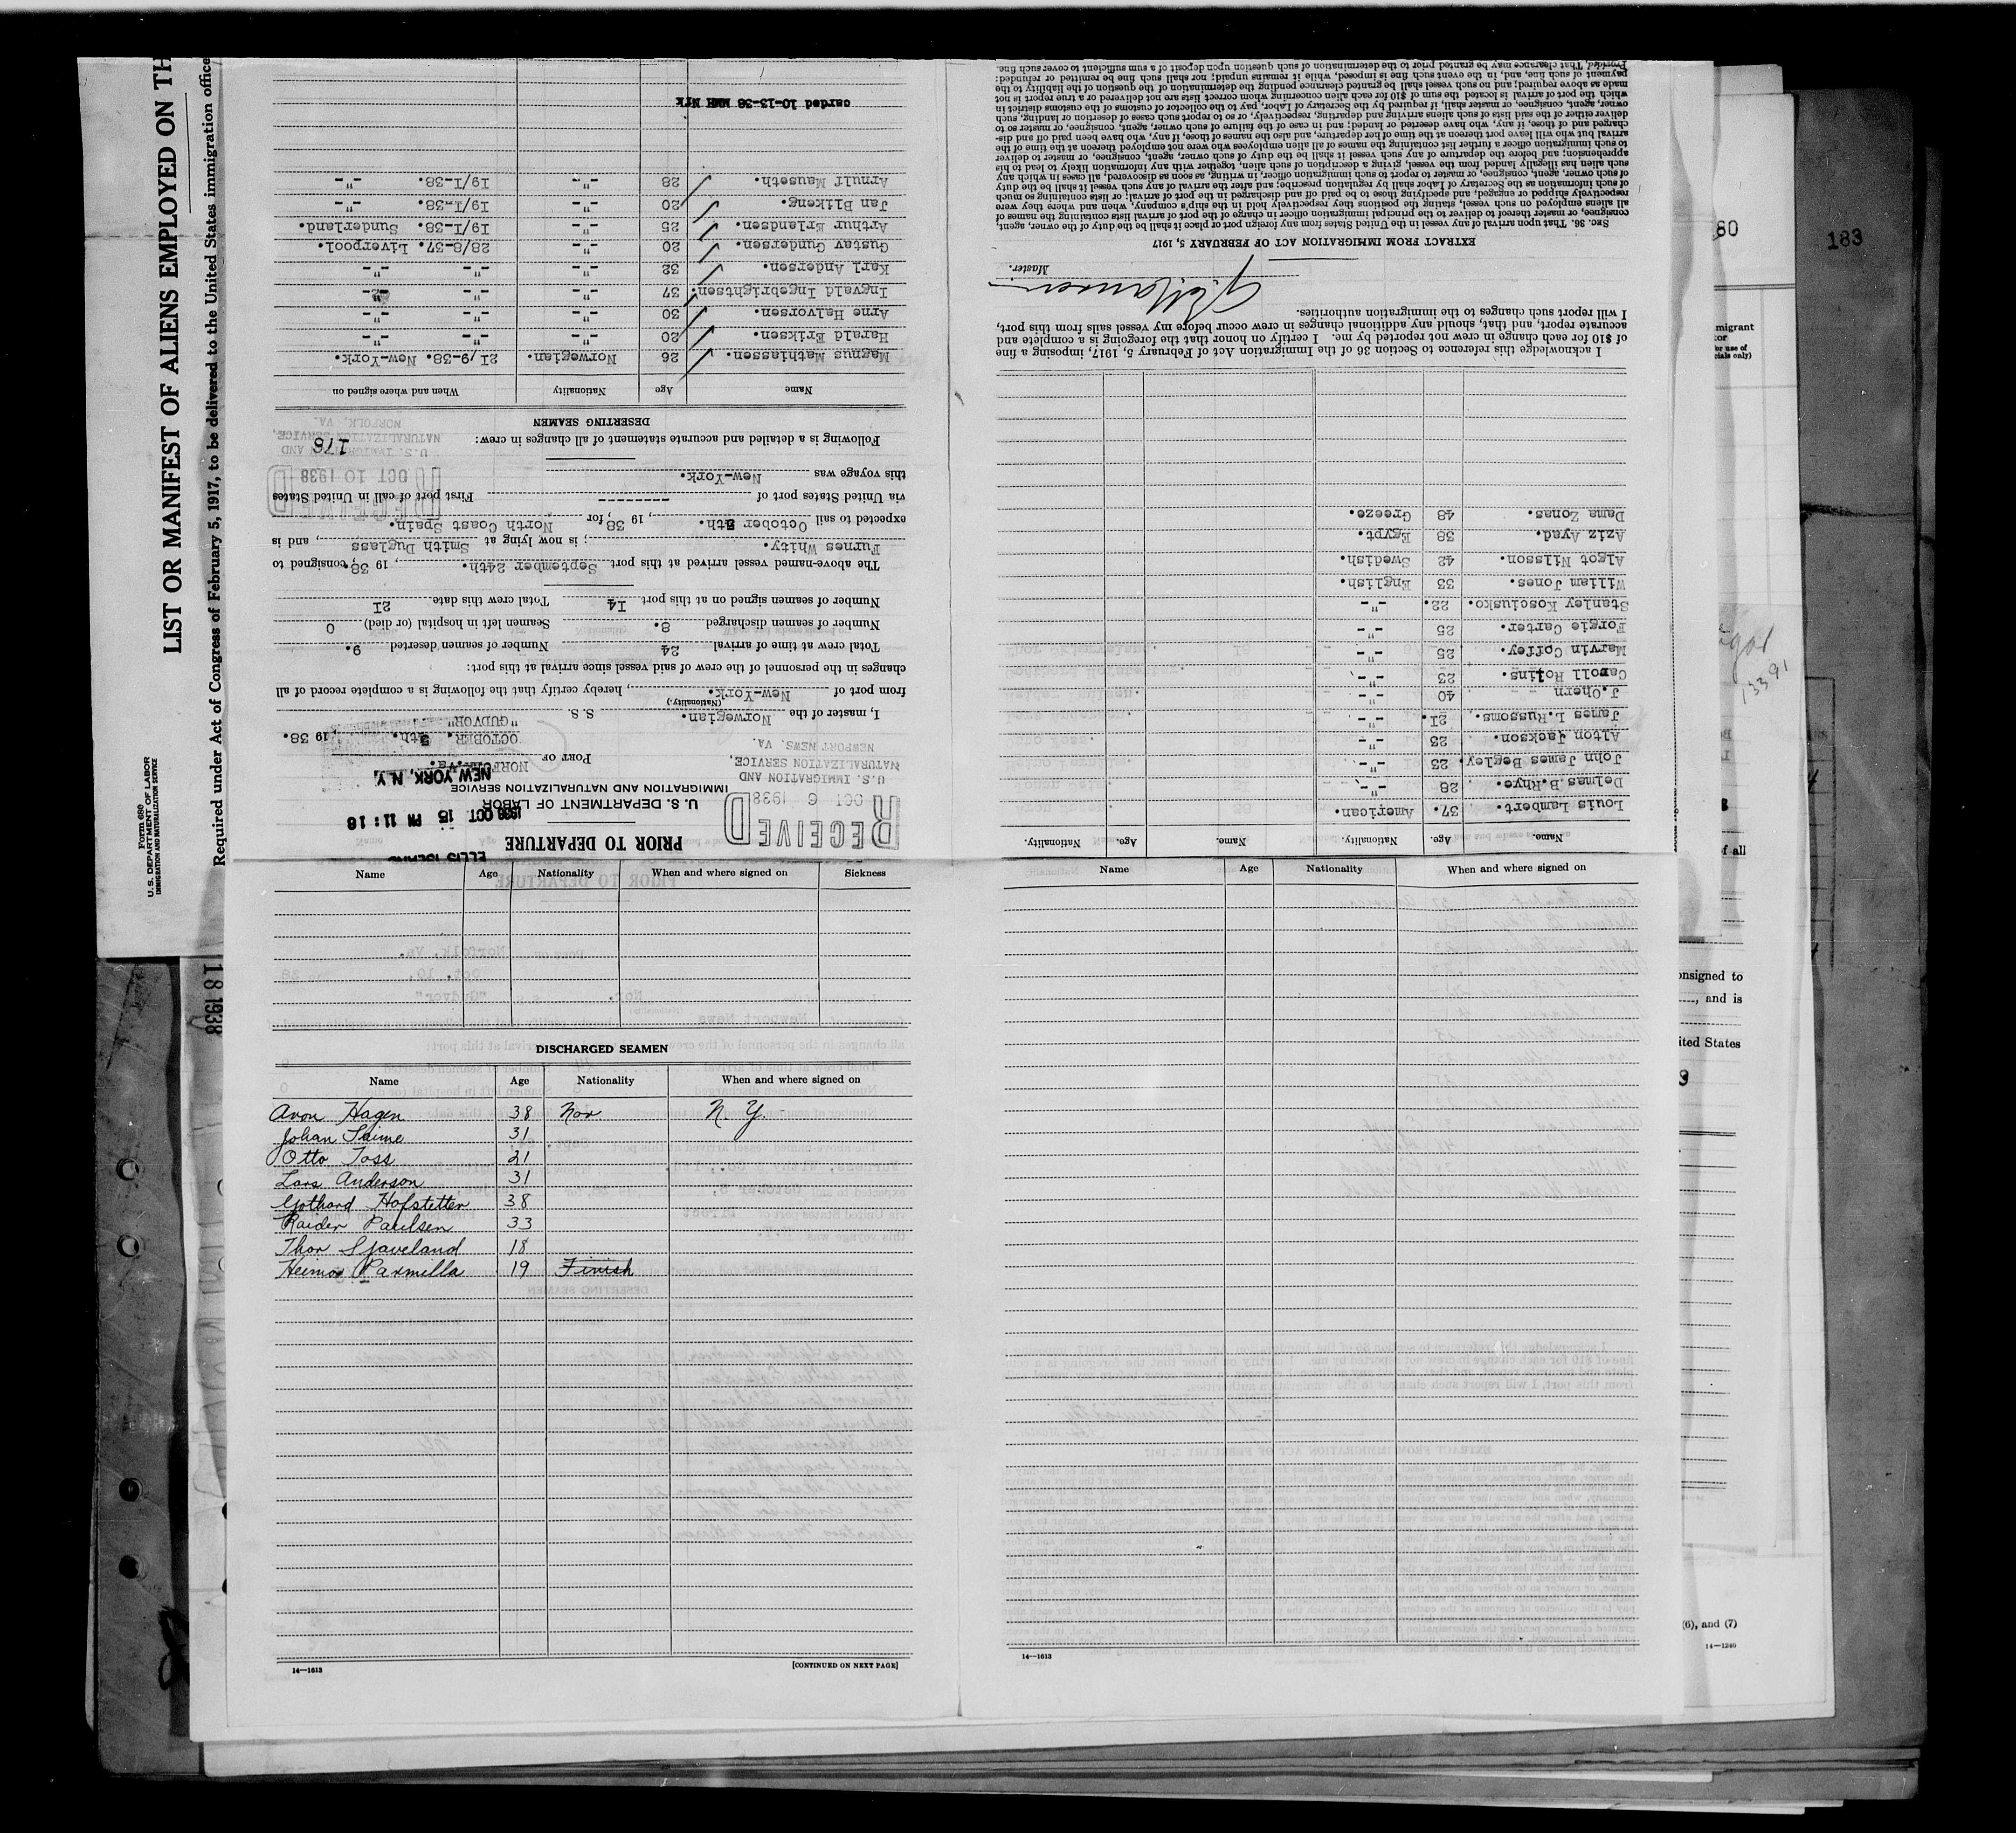 LIST OR MANIFEST OF ALIENS EMPLOYED ON TH
Required under Act of Congress of February 5, 1917, to be delivered to the United States immigration office
Form 680
U. S. DEPARTMENT OF LABOR
IMMIGRATION AND NATURALIZATION SERVICE
18 1938
ELLIS ISLAND
PRIOR TO DEPARTURE
1938 OCT 15 PM 11:18
U. S. DEPARTMENT OF LABOR
IMMIGRATION AND NATURALIZATION SERVICE
NEW YORK, N.Y.
RECEIVED
OCT 6 1938
U. S. IMMIGRATION AND
NATURALIZATION SERVICE,
NEWPORT NEWS, VA.
PORT OF NORFOLK, Va.
OCTOBER. 5th. , 19 38.
I, master of the Norwegian. S. S. "GUDVOR"
(Nationality)
from port of New-York. , hereby certify that the following is a complete record of all
changes in the personnel of the crew of said vessel since arrival at this port:
Total crew at time of arrival 24 Number of seamen deserted 9.
Number of seamen discharged 8. Seamen left in hospital (or died) 0
Number of seamen signed on at this port I4 Total crew this date 2I
The above-named vessel arrived at this port September 24th. , 19 38, consigned to
Furnes Whity. ; is now lying at Smith Duglass , and is
expected to sail October 5th. , 19 38, for North Coast Spain.
via United States port of -------- First port of call in United States
this voyage was New-York.
RECEIVED
OCT 10 1938
U. S. IMMIGRATION AND
NATURALIZATION SERVICE,
NORFOLK, VA.
Following is a detailed and accurate statement of all changes in crew:
176
DESERTING SEAMEN
Name Age Nationality When and where signed on
Magnus Mathiassen. 26 Norwegian. 2I/9-38. New-York.
Harald Eriksen. 20 -"- -"- -"-
Arne Halvorsen. 30 -"- -"- -"-
Ingvald Ingebrightsen. 37 -"- -"- -"-
Karl Andersen. 32 -"- -"- -"-
Gustav Gundersen. 20 -"- 28/8-37. Liverpool.
Arthur Erlandsen. 25 -"- I9/I-38. Sunderland.
Jan Blikeng. 20 -"- I9/I-38. -"-
Arnulf Mauseth. 28 -"- I9/I-38. -"-
carded 10-13-38 MMH Nfk
Name. Age. Nationality. Name. Age. Nationality.
Louis Lambert. 37. American.
Delmas B. Rhye. 28 -"-
John James Begley. 23 -"-
Alton Jackson. 23 -"-
James L. Russoms. 2I. -"-
J. Ohern 40 -"-
Caroll Rolins. 23 -"-
Marvin Coffey. 25 -"-
Forgie Carter. 25 -"-
Stanley Kosciusko. 22. -"-
William Jones. 33 English.
Algot Nilsson. 42 Swedish.
Aziz Ayad. 38 Egypt.
Dama Zonas. 48 Greeze.
I acknowledge this reference to Section 36 of the Immigration Act of February 5, 1917, imposing a fine
of $10 for each change in crew not reported by me. I certify on honor that the foregoing is a complete and
accurate report, and that, should any additional changes in crew occur before my vessel sails from this port,
I will report such changes to the immigration authorities.
Master.
EXTRACT FROM IMMIGRATION ACT OF FEBRUARY 5, 1917
SEC. 36. That upon arrival of any vessel in the United States from any foreign port or place it shall be the duty of the owner, agent,
consignee, or master thereof to deliver to the principal immigration officer in charge of the port of arrival lists containing the names of
all aliens employed on such vessel, stating the positions they respectively hold in the ship's company, when and where they were
respectively shipped or engaged, and specifying those to be paid off and discharged in the port of arrival; or lists containing so much
of such information as the Secretary of Labor shall by regulation prescribe; and after the arrival of any such vessel it shall be the duty
of such owner, agent, consignee, or master to report to such immigration officer, in writing, as soon as discovered, all cases in which any
such alien has illegally landed from the vessel, giving a description of such alien, together with any information likely to lead to his
apprehension; and before the departure of any such vessel it shall be the duty of such owner, agent, consignee, or master to deliver
to such immigration officer a further list containing the names of all alien employees who were not employed thereon at the time of the
arrival but who will leave port thereon at the time of her departure, and also the names of those, if any, who have been paid off and dis-
charged and of those, if any, who have deserted or landed; and in case of the failure of such owner, agent, consignee, or master so to
deliver either of the said lists of such aliens arriving and departing, respectively, or so to report such cases of desertion or landing, such
owner, agent, consignee, or master shall, if required by the Secretary of Labor, pay to the collector of customs of the customs district in
which the port of arrival is located the sum of $10 for each alien concerning whom correct lists are not delivered or a true report is not
made as above required; and no such vessel shall be granted clearance pending the determination of the question of the liability to the
payment of such fine, and, in the event such fine is imposed, while it remains unpaid; nor shall such fine be remitted or refunded:
Provided, That clearance may be granted prior to the determination of such question upon deposit of a sum sufficient to cover such fine.
Name Age Nationality When and where signed on Sickness
DISCHARGED SEAMEN
Name Age Nationality When and where signed on
Avon Hagen 38 Nor N. Y.
Johan Saime 31
Otto Toss 21
Lars Anderson 31
Gothard Hofstetter 38
Raider Paulsen 33
Thor Sjaveland 18
Heimo Parmella 19 Finish
14—1613 [CONTINUED ON NEXT PAGE]
Name Age Nationality When and where signed on
14—1613
80
183
migrant
or
er use of
cials only)
13391
of all
onsigned to
, and is
ited States
(6), and (7)
14—1240